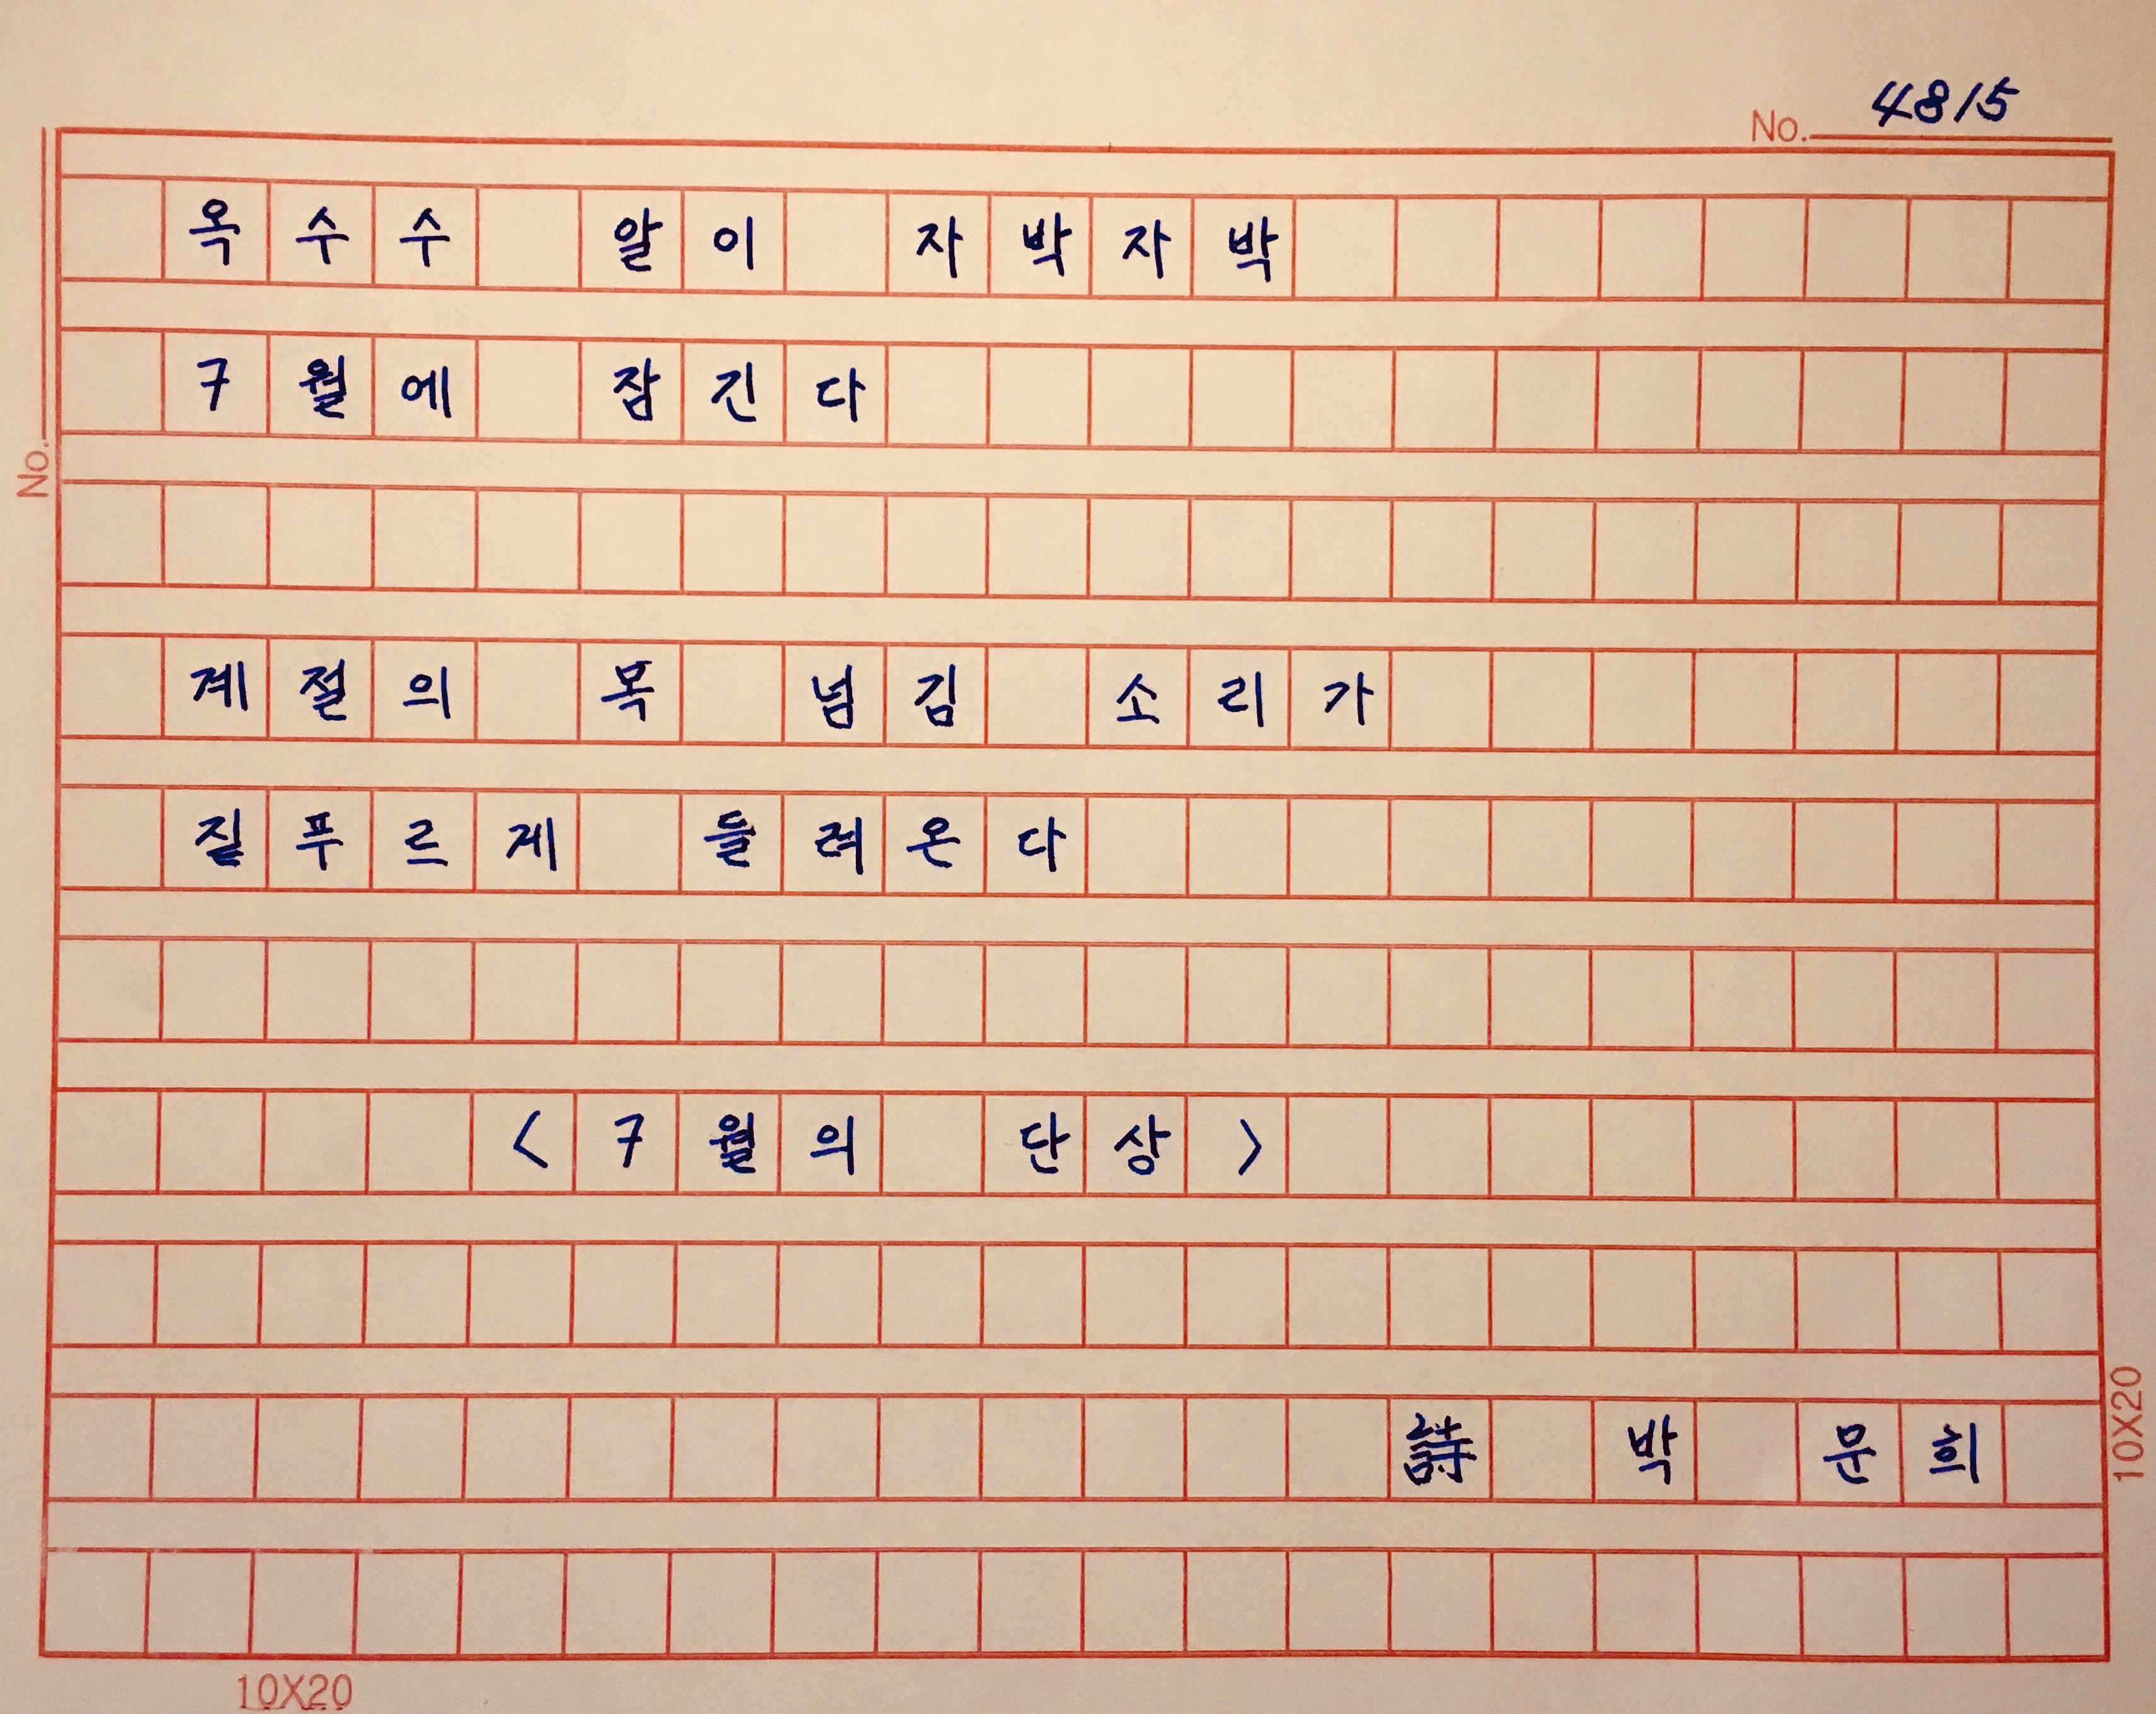 No. 4815
옥수수 알이 자박자박
7월에 잠긴다
No.
계절의 목 넘김 소리가
짙푸르게 들려온다
<7월의 단상>
詩 박 문희
10X20
10X20